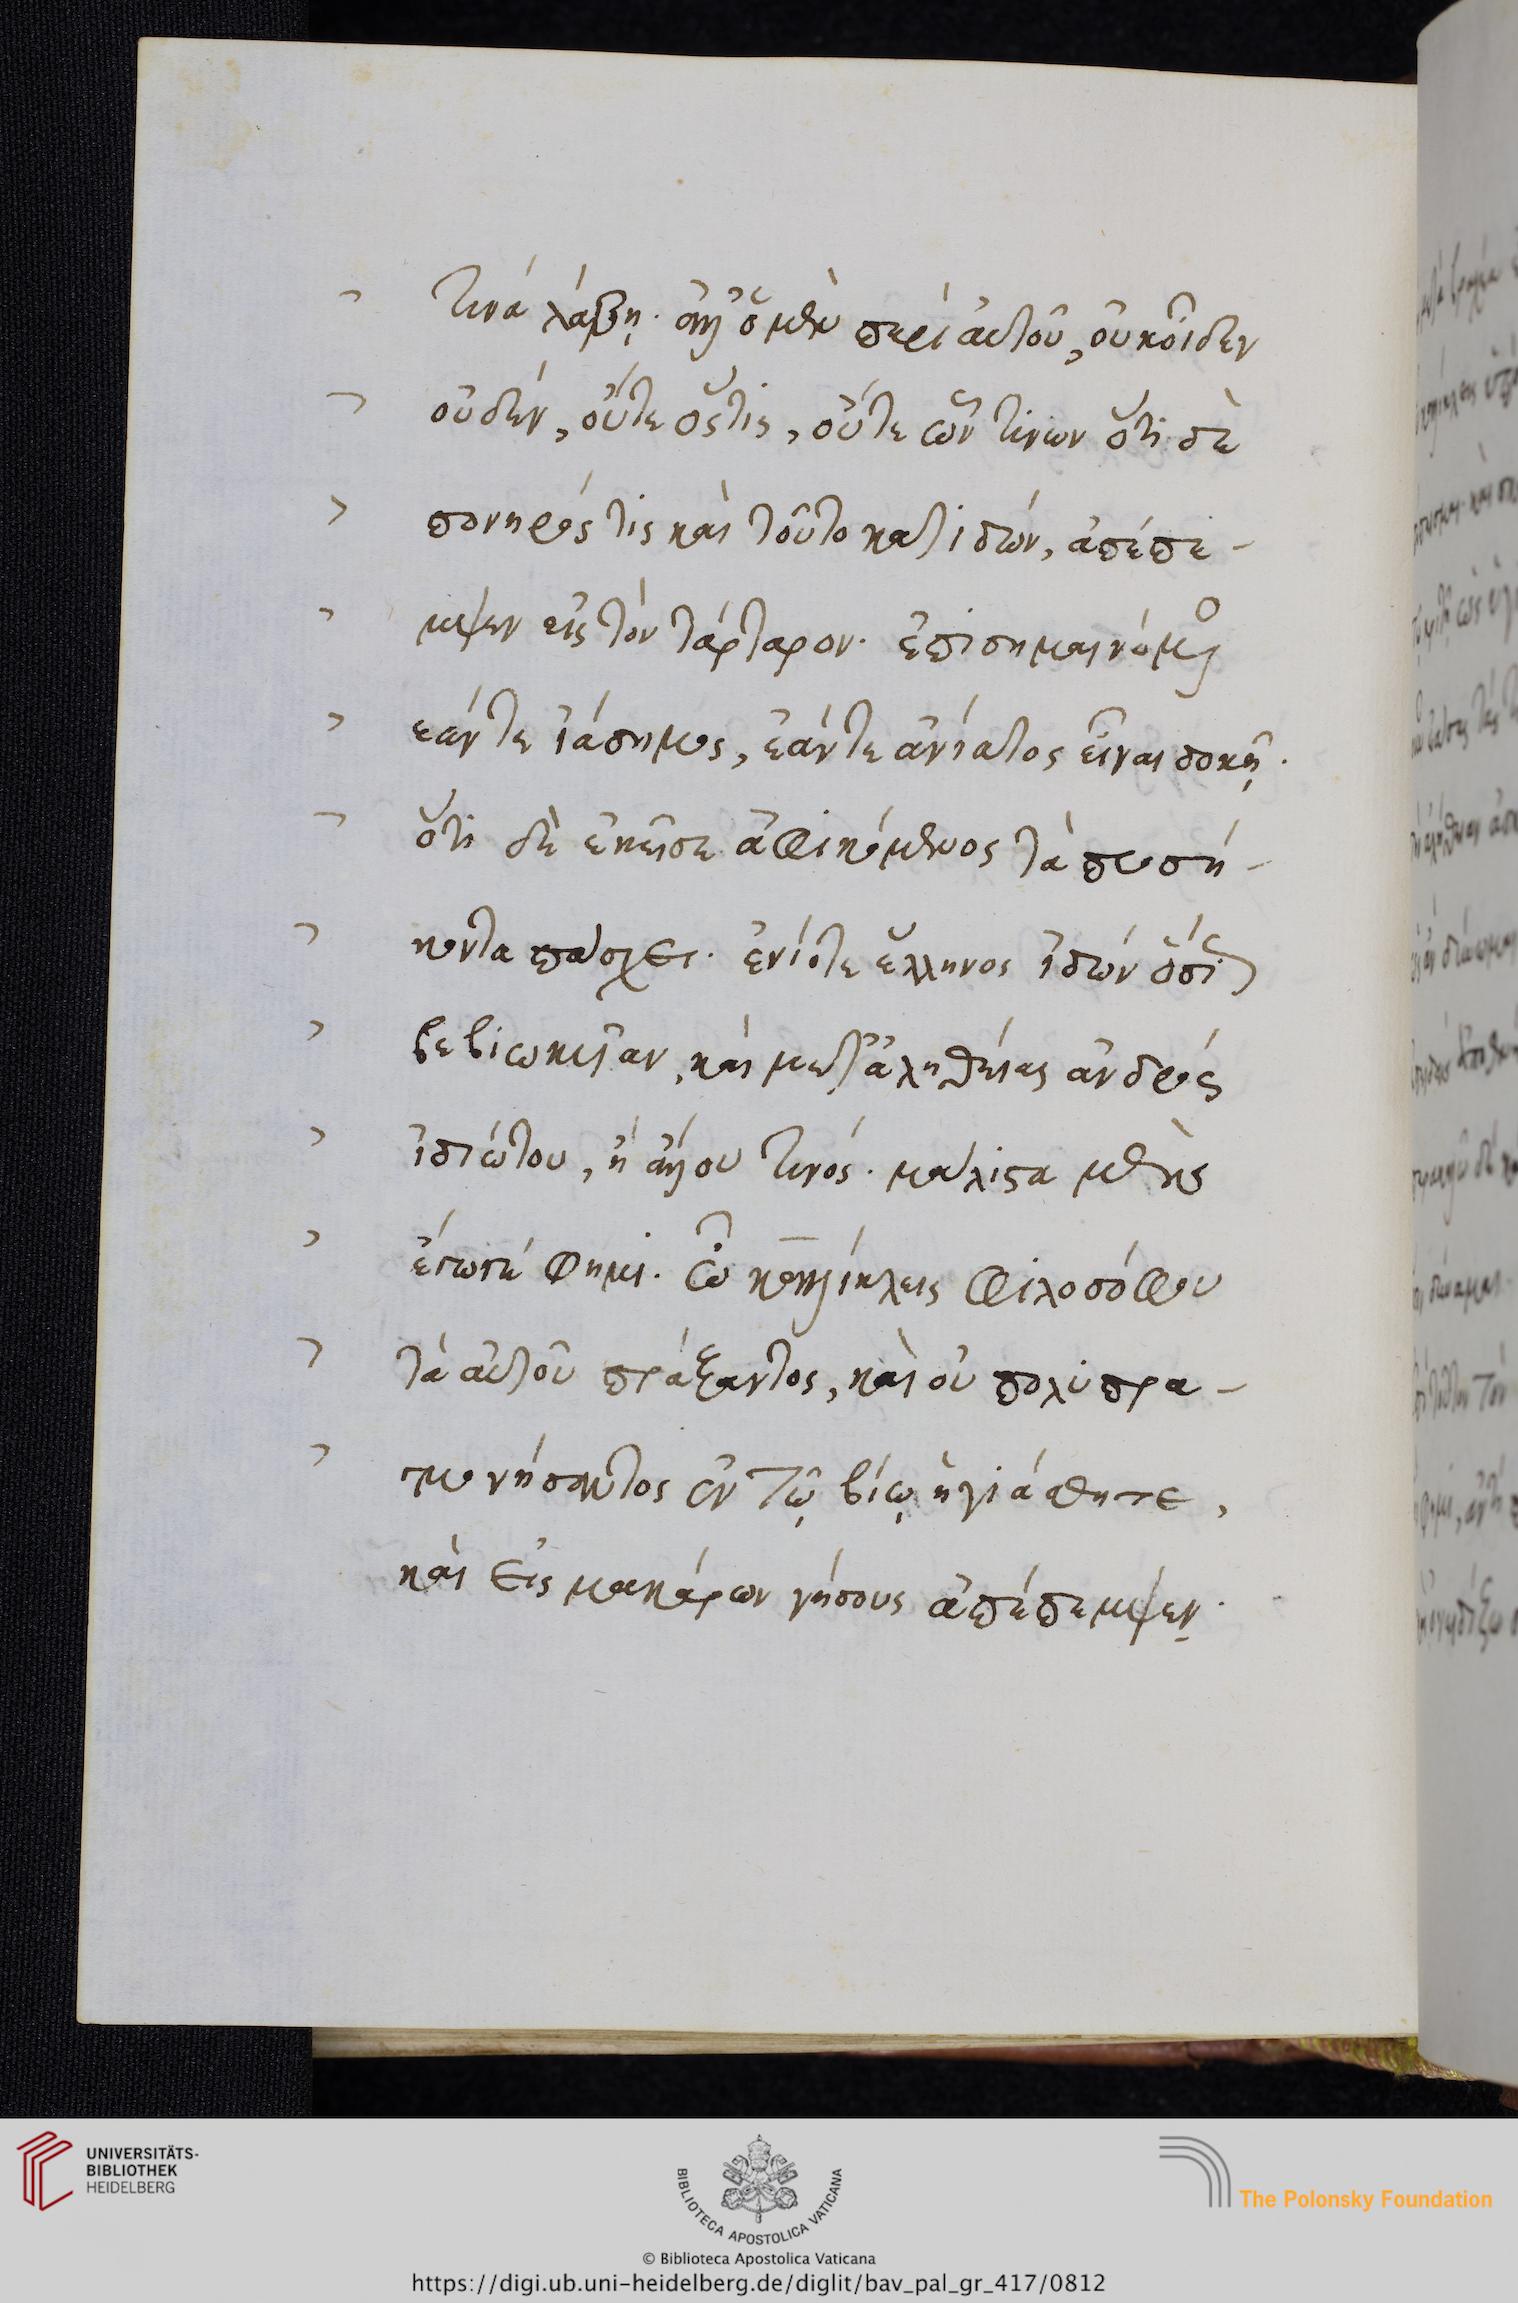 τινά λάβη. ἄλλο μὲν περὶ ἀυτοῦ, ὀυκ οἶδεν
οὐδέν, οὔτε ὅςτις, οὔτε ὧν τινων ὅτι δὲ
πονηρός τις καὶ τοῦτο κατιδών, ἀπέπε-
μψεν εἰς τὸν τάρταρον. ἐπισημαινόμενος
ἐάντε ἰάσημος, ἐάντε ἀνίατος εἶναι δοκῇ.
ὅτι δὲ ἐκεῖσε ἀφικόμενος τὰ προσή-
κοντα πάσχει. ἐνίοτε ἔλληνος ἰδών
βεβιωκεῖαν, καὶ μετ ἀληθείας ἀνδρός
ἰδιώτου, ἢ ἄλλου τινός. μάλιστα μὲν
ἔγωγέ φημι. ὦ καλλίκλεις φιλοσόφου
τὰ αὐτοῦ πράξαντος, καὶ οὐ πολυπρα-
γμονήσαντος ἐν τῷ βίῳ ἠγιάσθητε,
καὶ εἰς μακάρων νήσους ἀπέπεμψεν.
UNIVERSITÄTS-
BIBLIOTHEK
HEIDELBERG
BIBLIOTECA APOSTOLICA VATICANA
The Polonsky Foundation
© Biblioteca Apostolica Vaticana
https://digi.ub.uni-heidelberg.de/diglit/bav_pal_gr_417/0812